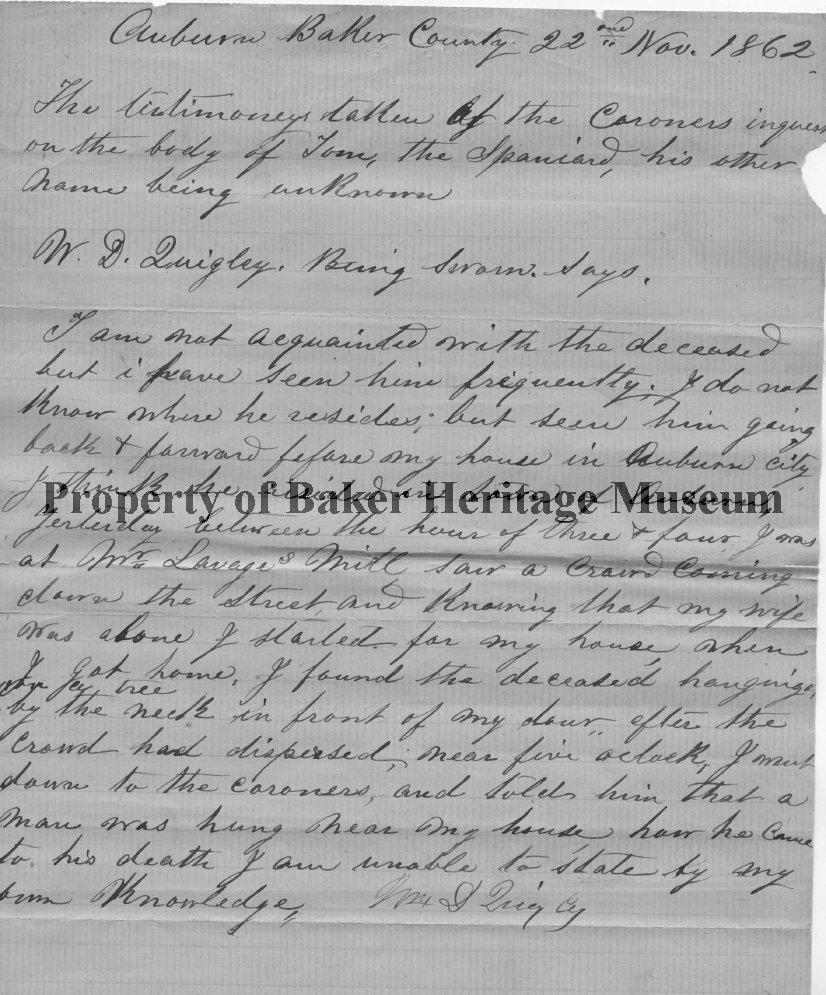 Auburn Baker County 22nd Nov. 1862
The testimoney taken of the Coroners inquest
on the body of Tom, the Spaniard, his other
name being unknown
W. D. Quigley. Being sworn. Says.
I am not acquainted with the deceased
but i have seen him friquently. I do not
Know where he resides, but seen him going
back & forward before my house in Auburn City
I think he resided in
Property of Baker Heritage Museum
Yesterday between the hour of three & four, I was
at Mr. Savages Mill saw a crowd coming
down the street, and Knowing that my wife
was alone I started for my house, when
I got home, I found the deceased hanging
on a tree
by the neck in front of my dour, after the
Crowd had dispersed, near five oclock, I went
down to the coroners, and told him, that a
man was hung near my house, how he came
to his death I am unable to state by my
own Knowledge, Wm D Quigley